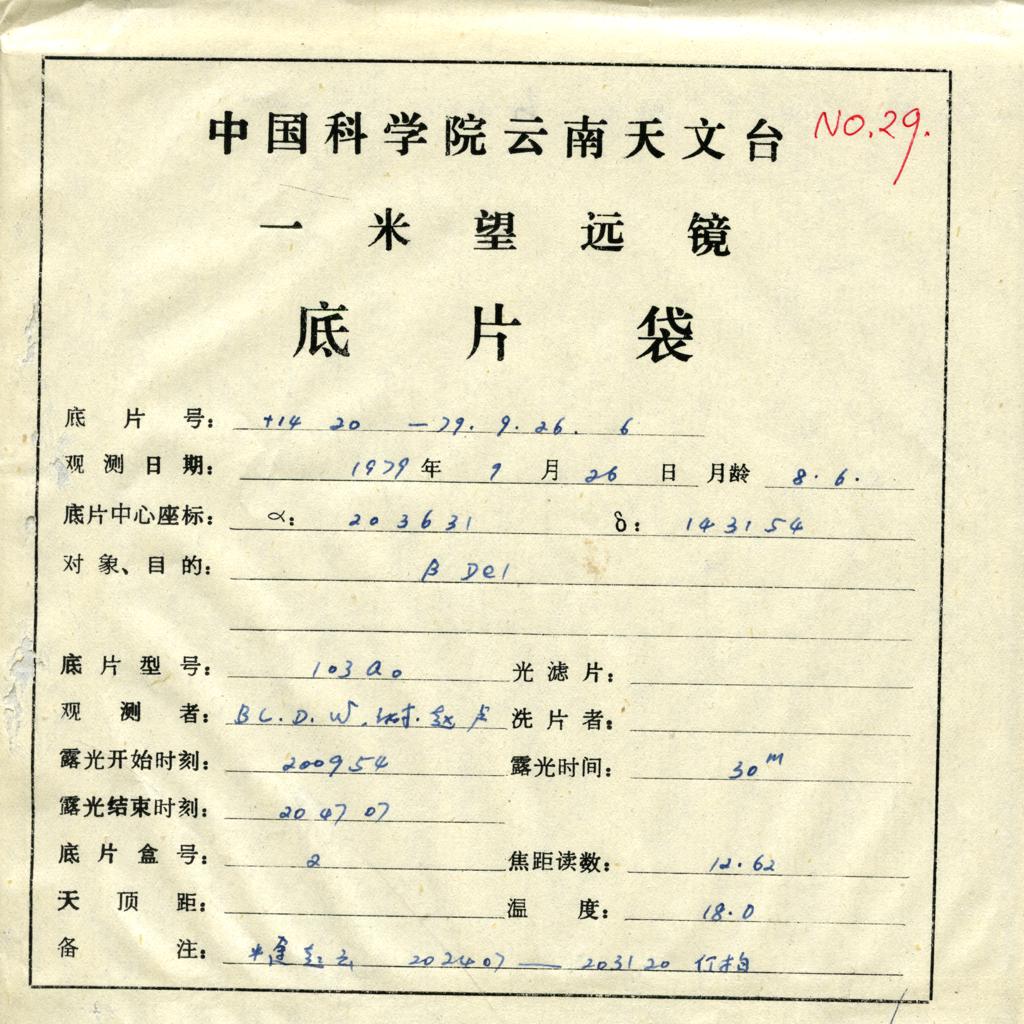 中国科学院云南天文台 NO.29.
一米望远镜
底片袋
底片号: +14 20 — 79. 9. 26. 6
观测日期: 1979年 9月 26日 月龄 8.6.
底片中心座标: α: 20 36 31 δ: 14 31 54
对象、目的: β Del
底片型号: 103aO 光滤片:
观测者: B L. D. W. 赵 卢 洗片者:
露光开始时刻: 200954 露光时间: 30m
露光结束时刻: 20 47 07
底片盒号: 2 焦距读数: 12.62
天顶距: 温度: 18.0
备注: 202407 — 203120